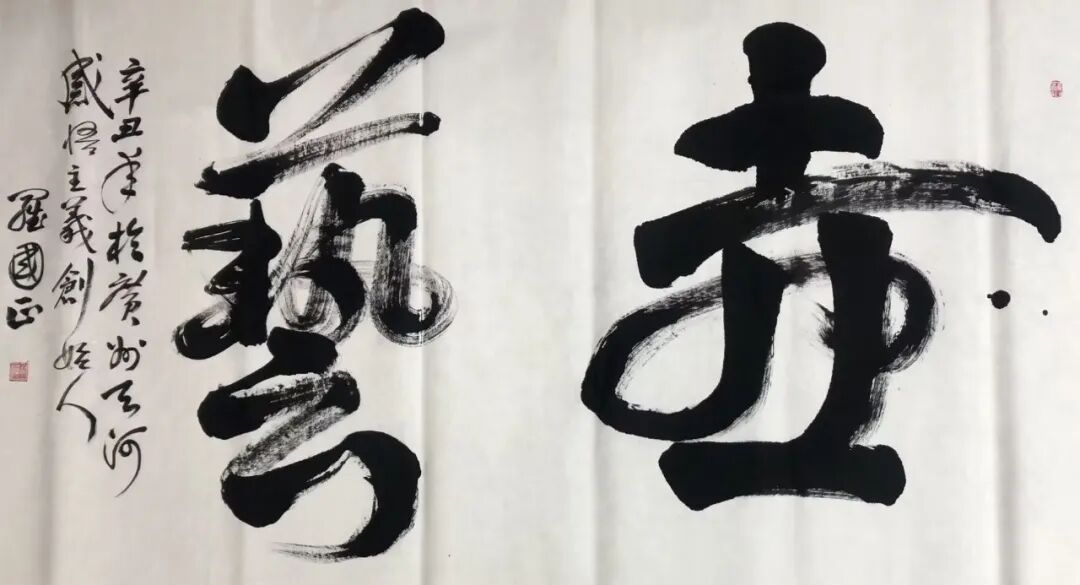 壶藝
辛丑年於廣州天河
感悟主義創始人
羅國正